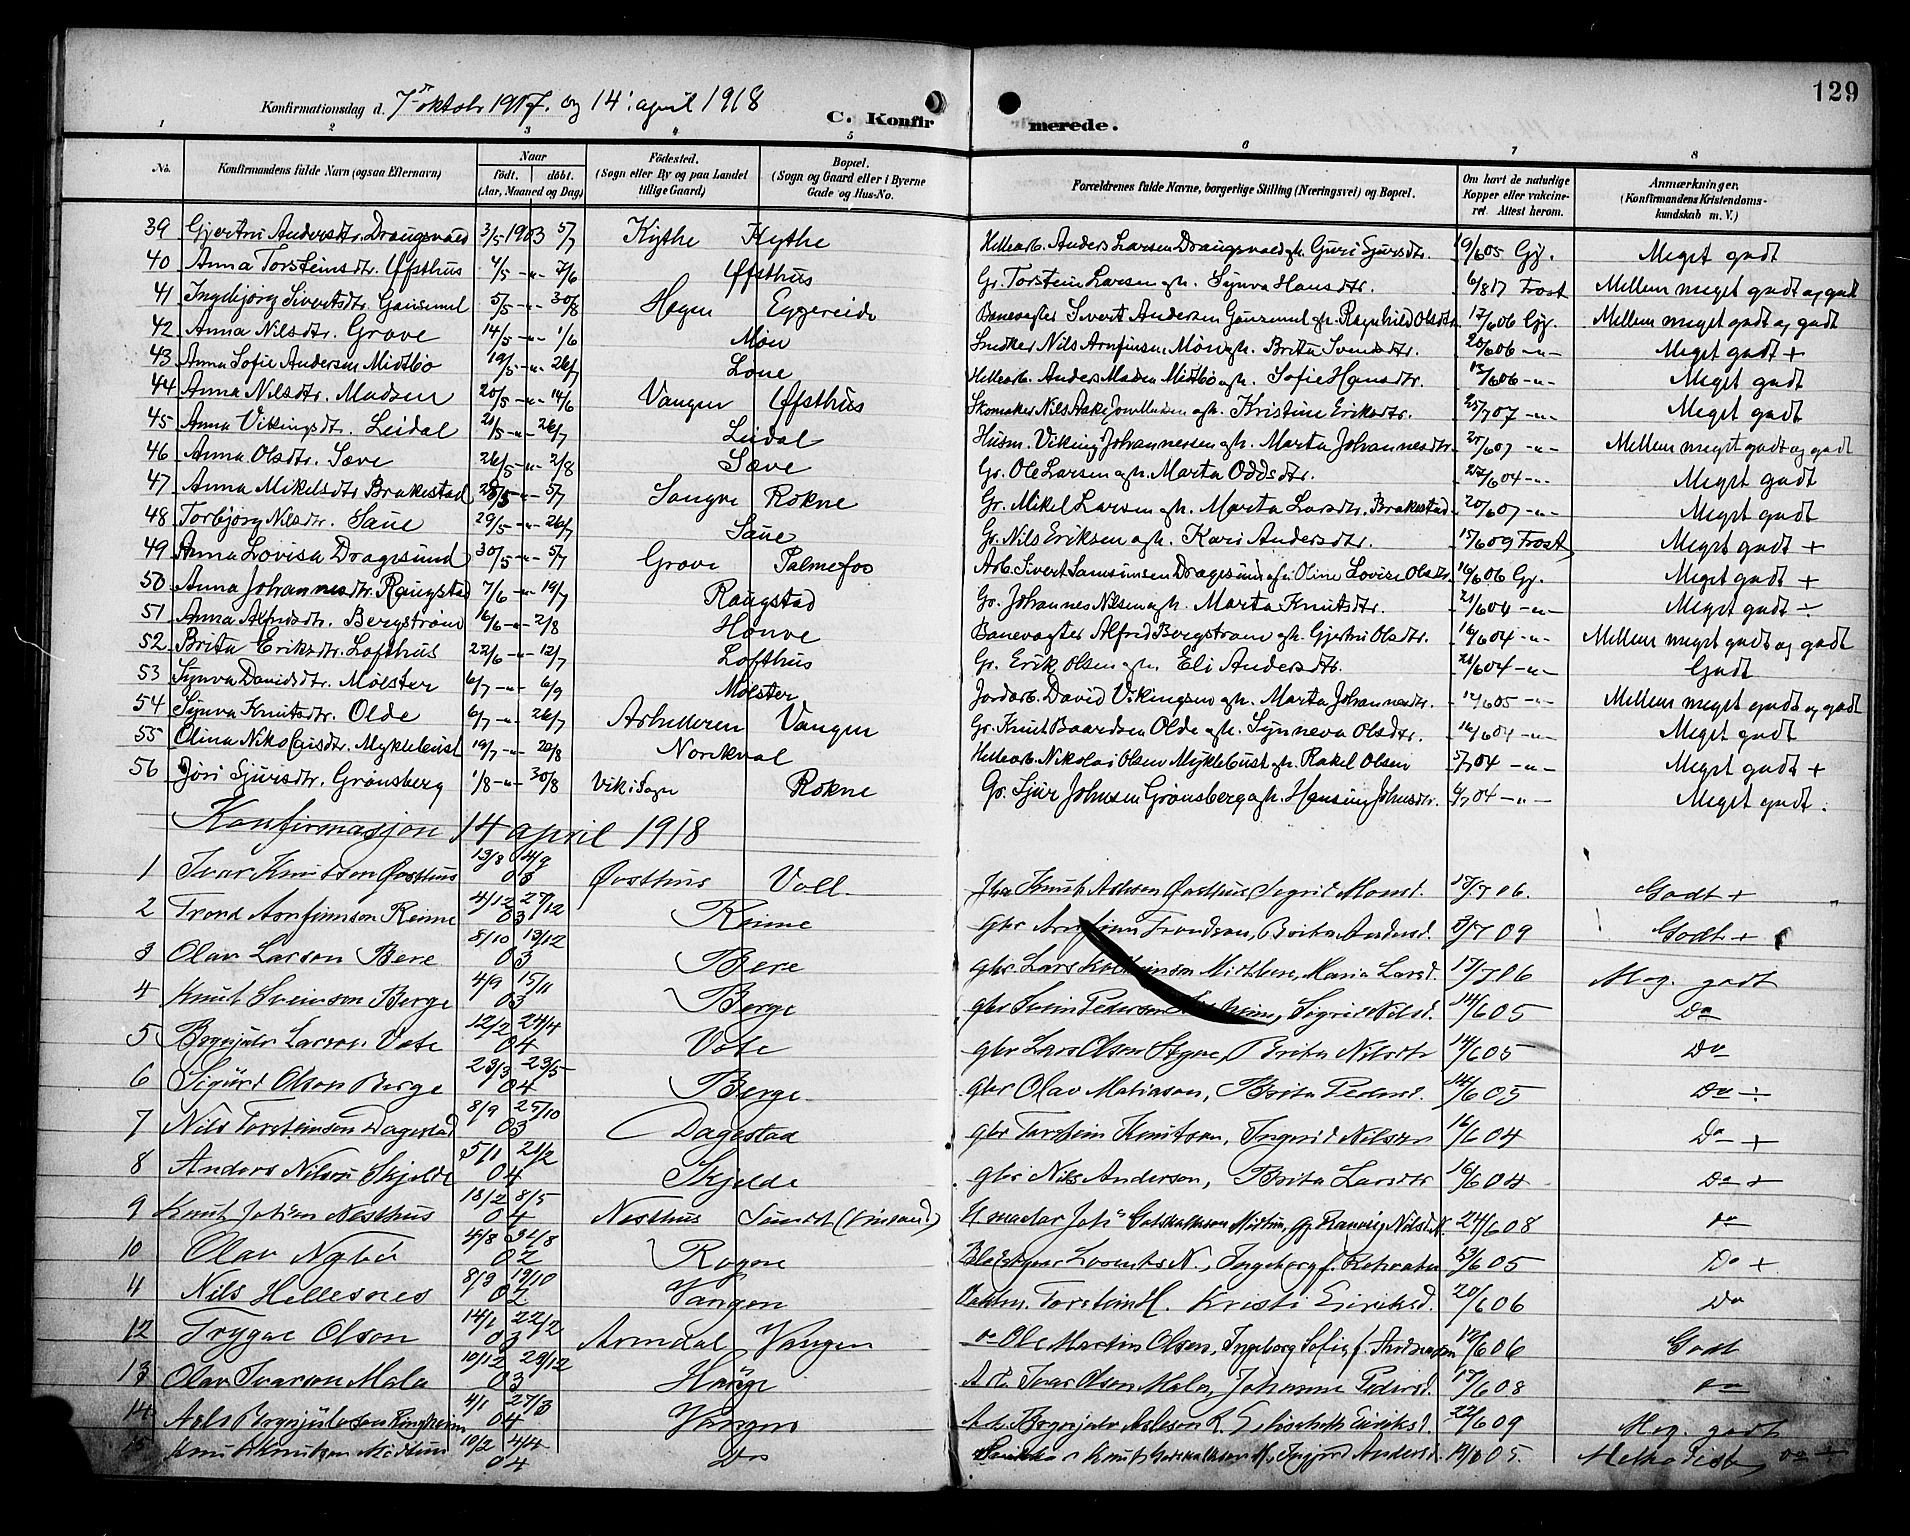 129
Konfirmationsdag d. 7de oktobr 1917. og 14. april 1918
C. Konfirmerede.
1 2 3 4 5 6 7 8
No. Konfirmandens fulde Navn (ogsaa Efternavn) Naar födt. döbt. (Aar, Maaned og Dag) Födested. (Sogn eller By og paa Landet tillige Gaard) Bopæl. (Sogn og Gaard eller i Byerne Gade og Hus-No.) Forældrenes fulde Navne, borgerlige Stilling (Næringsvei) og Bopæl. Om havt de naturlige Kopper eller vaccineret. Attest herom. Anmærkninger. (Konfirmandens Kristendomskundskab m. V.)
39 Gjertru Andersdtr. Draugsvold 3/5 1903 5/7 Kythe Kythe Hellearb. Anders Larsen Draugsvold gh. Guri Sjursdtr. 19/6 05 Gj. Meget godt
40 Anna Torsteinsdtr. Ufsthus 4/5 -"- 7/6 Ufsthus Gr. Torstein Larsen gh. Synva Hansdtr. 6/8 17 Frost Mellem meget godt og godt
41 Ingebjörg Sivertsdtr. Gausemel 5/5 -"- 30/8 Hagen Eggereide Banevogter Sivert Andersen Gausemel gh. Ragnhild Olsdtr. 17/6 06 Gj. Mellem meget godt og godt
42 Anna Nilsdtr. Grove 14/5 -"- 1/6 Mön Snedker Nils Arnfinsen Mön gh. Brita Svendsdtr. 20/6 06 -"- Meget godt +
43 Anna Sofie Andersen Midtbö 19/5 -"- 26/7 Lone Hellearb. Anders Madsen Midtbö gh. Sofie Hansdtr. 13/6 06 -"- Meget godt
44 Anna Nilsdtr. Madsen 20/5 -"- 14/6 Vangen Ufsthus Skomaker Nils Madsen gh. Kristine Eriksdtr. 25/7 07 -"- Meget godt
45 Anna Vikingsdt. Leidal 21/5 -"- 26/7 Leidal Husm. Viking Johannessen gh. Marta Johannesdtr. 25/6 07 -"- Mellem meget godt og godt
46 Anna Olsdtr. Sæve 26/5 -"- 2/8 Sæve Gr. Ole Larsen gh. Marta Oddsdtr. 27/6 04 -"- Meget godt
47 Anna Mikelsdtr Brakestad 28/5 -"- 5/7 Sangve Rokne Gr. Mikel Larsen gh. Marita Larsdtr. Brakestad 20/6 07 -"- Meget godt
48 Torbjörg Nilsdtr. Saue 29/5 -"- 26/7 Saue Gr. Nils Eriksen gh. Kari Andersdtr. 15/6 09 Frost Meget godt +
49 Anna Lovisa Dragesund 30/5 -"- 5/7 Grove Palmefos Arb. Sivert Samsonsen Dragesund Oline Lovise Olsdtr. 16/6 06 Gj. Meget godt +
50 Anna Johannesdtr. Raugstad 7/6 -"- 19/7 Raugstad Gr. Johannes Nilsen gh. Marta Knutsdtr. 21/6 04 -"- Meget godt ÷
51 Anna Alfredsdtr. Bergström 16/6 -"- 2/8 Honve Banevogter Alfred Bergstrøm gh. Gjertru Olsdtr. 16/6 04 -"- Mellem meget godt og godt
52 Brita Eriksdtr. Lofthus 22/6 -"- 12/7 Lofthus Gr. Erik Olsen gh. Eli Andersdtr. 21/6 04 -"- Godt
53 Synva Davidsdtr. Mölster 6/7 -"- 6/9 Mölster Jordarb. David Vikingsen gh. Marta Johannesdtr. 12/6 05 -"- Mellem meget godt og godt
54 Synva Knutsdtr. Olde 6/7 -"- 26/7 Vangen Gr. Knut Baardsen Olde gh. Synneva Olsdtr. 16/6 04 -"- Meget godt
55 Olina Nikolaisdtr. Myklebust 19/7 -"- 20/8 Norekval Hellearb. Nikolai Olsen Myklebust gh. Rakel Olsen 5/7 04 -"- Meget godt +
56 Jöri Sjursdtr. Grönsberg 1/8 -"- 30/8 Vik i Sogn Rokne Gr. Sjur Johnsen Grönsberg gh. Hansina Johnsdtr. 6/7 04 -"- Meget godt ÷
Konfirmasjon 14 april 1918
1 Ivar Knutson Övsthus 13/8 14/9 03 Övsthus Voll Knut Övsthus, Sigrid Monsd. 17/7 06. Godt +
2 Trond Arnfinnson Reime 4/12 27/12 03 Reime gbr Arnfinn Trondson, Brita Andersd. 3/7 09 Godt +
3 Olav Larson Bere 8/10 13/12 03 Bere gbr Lars Midtbere, Maria Larsd. 17/7 06 Meg. godt
4 Knut Sveinson Berge 4/9 15/11 03 Berge gbr Svein Pederson, Sigrid Nilsd. 14/6 05 Do
5 Brynjulv Larson Vete 12/2 24/4 04 Vete gbr Lars Olson Styve, Brita Nilsdtr 14/6 05 Do
6 Sigurd Olson Berge 23/3 23/5 04 Berge gbr Olav Matiason, Brita Pedersd. 14/6 05 Do ÷
7 Nils Torsteinson Dagestad 8/9 25/10 03 Dagestad gbr Torstein Knutson, Ingerid Nilsdtr 16/6 04 Do +
8 Anders Nilson Skjelde 5/1 21/2 04 Skjelde gbr Nils Anderson, Brita Larsdtr 16/6 04 Do +
9 Knut Nesthus 13/2 8/5 04 Nesthus 24/6 08 Do
10 Olav Nybö 4/8 31/8 02 Rogne 23/6 05 Do +
11 Nils Hellesnes 8/9 19/10 02 Vangen Torstein H. Kristi Eiriksd. 20/6 06 Do
12 Trygve Olson 14/1 22/2 03 Arendal Vangen Do Ole Martin Olsen, Ingeborg Sofie f. Andreassen 12/6 06 Godt
13 Olav Ivarson Mala 10/12 29/12 03 Hauge Arb. Ivar Olson Mala, Johanna Pedersd. 17/6 08 Do
14 Asle Brynjulvson Ringheim 4/1 27/3 04 Vangen Brynjulv Asleson R. Elisabeth Eiriksd. 22/6 09 Meg. godt
15 Knut Knutson Midtun 10/2 4/4 04 Do Knut M., Ingjerd Andersd. 19/6 05. Metodist Do ÷